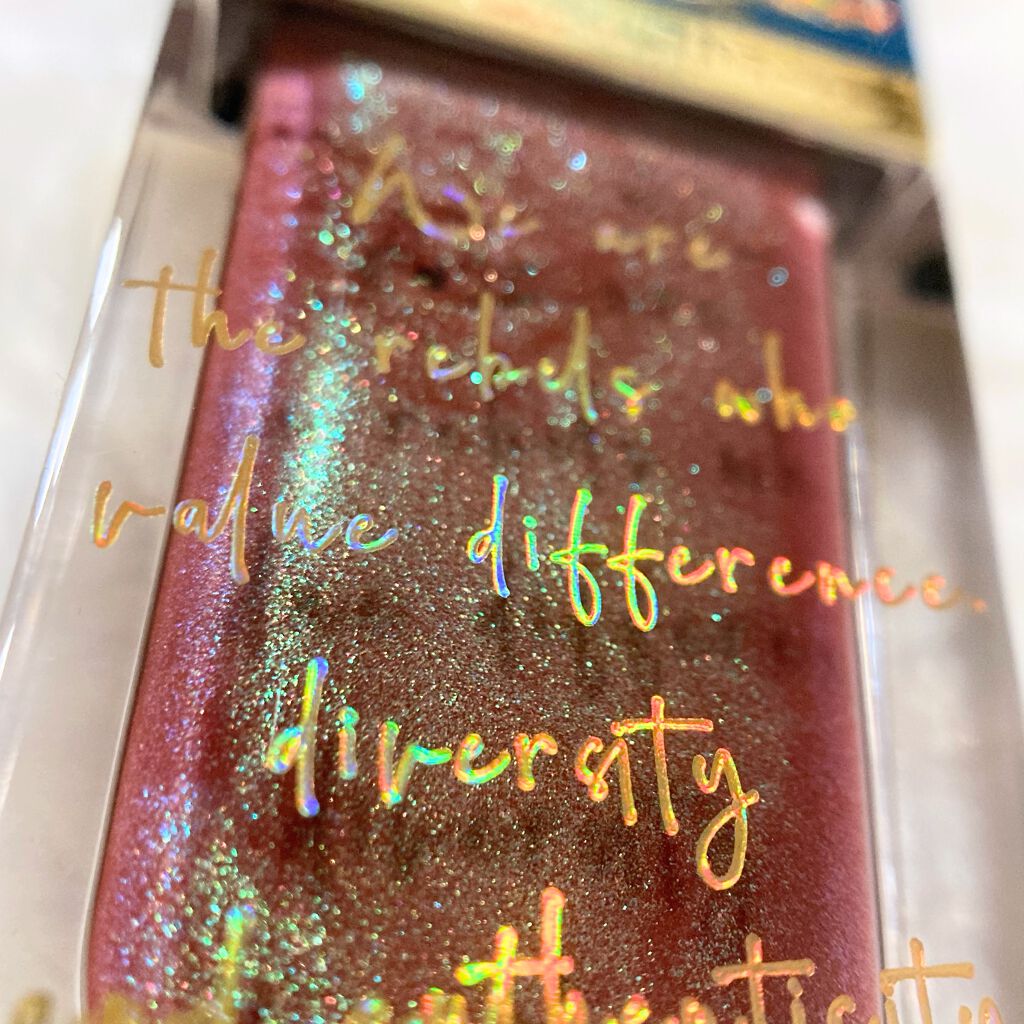 We are
the rebels who
value difference.
diversity
and authenticity